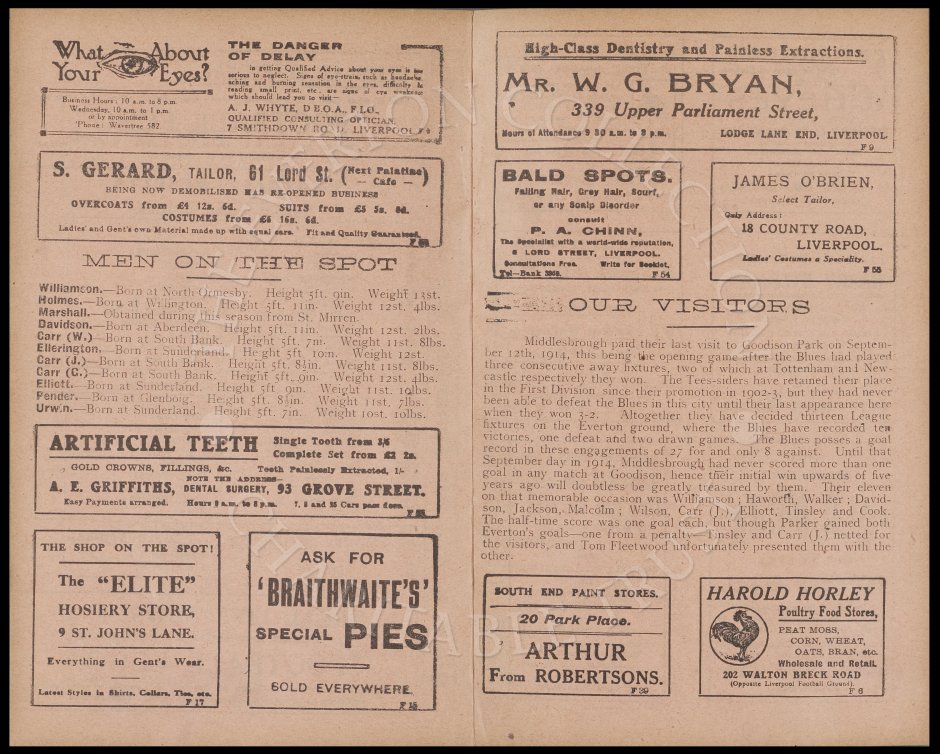 What About
Your Eyes?
Business Hours: 10 a.m. to 8 p.m.
Wednesday, 10 a.m. to 1 p.m.
or by appointment
'Phone: Wavertree 582
THE DANGER
OF DELAY
in getting Qualified Advice about your eyes is too
serious to neglect. Signs of eye-strain, such as headache,
aching and burning sensation in the eyes, difficulty in
reading small print, etc., are signs of eye weakness
which should lead you to visit—
A. J. WHYTE, D.B.O.A., F.I.O.,
QUALIFIED CONSULTING OPTICIAN,
7 SMITHDOWN ROAD, LIVERPOOL
S. GERARD, TAILOR, 61 Lord St. (Next Palatine Cafe)
BEING NOW DEMOBILISED HAS RE-OPENED BUSINESS
OVERCOATS from £4 12s. 6d. SUITS from £5 5s. 0d.
COSTUMES from £6 16s. 6d.
Ladies' and Gent's own Material made up with equal care. Fit and Quality Guaranteed.
MEN ON THE SPOT
Williamson.—Born at North Ormesby. Height 5ft. 9in. Weight 13st.
Holmes.—Born at Willington. Height 5ft. 11in. Weight 12st. 4lbs.
Marshall.—Obtained during this season from St. Mirren.
Davidson.—Born at Aberdeen. Height 5ft. 11in. Weight 12st. 2lbs.
Carr (W.)—Born at South Bank. Height 5ft. 7in. Weight 11st. 8lbs.
Ellerington.—Born at Sunderland. Height 5ft. 10in. Weight 12st.
Carr (J.)—Born at South Bank. Height 5ft. 8½in. Weight 11st. 8lbs.
Carr (G.)—Born at South Bank. Height 5ft. 9in. Weight 12st. 4lbs.
Elliott.—Born at Sunderland. Height 5ft. 9in. Weight 11st. 10lbs.
Pender.—Born at Glenboig. Height 5ft. 8½in. Weight 11st. 7lbs.
Urwin.—Born at Sunderland. Height 5ft. 7in. Weight 10st. 10lbs.
ARTIFICIAL TEETH Single Tooth from 3/6
Complete Set from £2 2s.
GOLD CROWNS, FILLINGS, &c. Teeth Painlessly Extracted, 1/-
NOTE THE ADDRESS—
A. E. GRIFFITHS, DENTAL SURGERY, 93 GROVE STREET.
Easy Payments arranged. Hours 9 a.m. to 8 p.m. 7, 8 and 25 Cars pass door.
THE SHOP ON THE SPOT!
The "ELITE"
HOSIERY STORE,
9 ST. JOHN'S LANE.
Everything in Gent's Wear.
Latest Styles in Shirts, Collars, Ties, etc.
F 17
ASK FOR
'BRAITHWAITE'S'
SPECIAL PIES
SOLD EVERYWHERE.
F 15
High-Class Dentistry and Painless Extractions.
MR. W. G. BRYAN,
339 Upper Parliament Street,
Hours of Attendance 9 30 a.m. to 8 p.m. LODGE LANE END, LIVERPOOL.
F 9
BALD SPOTS.
Falling Hair, Grey Hair, Scurf,
or any Scalp Disorder
consult
P. A. CHINN,
The Specialist with a world-wide reputation,
6 LORD STREET, LIVERPOOL.
Consultations Free. Write for Booklet.
Tel—Bank F 54
JAMES O'BRIEN,
Select Tailor,
Only Address:
18 COUNTY ROAD,
LIVERPOOL.
Ladies' Costumes a Speciality.
F 55
OUR VISITORS
Middlesbrough paid their last visit to Goodison Park on Septem-
ber 12th, 1914, this being the opening game after the Blues had played
three consecutive away fixtures, two of which at Tottenham and New-
castle respectively they won. The Tees-siders have retained their place
in the First Division since their promotion in 1902-3, but they had never
been able to defeat the Blues in this city until their last appearance here
when they won 3-2. Altogether they have decided thirteen League
fixtures on the Everton ground, where the Blues have recorded ten
victories, one defeat and two drawn games. The Blues posses a goal
record in these engagements of 27 for and only 8 against. Until that
September day in 1914, Middlesbrough had never scored more than one
goal in any match at Goodison, hence their initial win upwards of five
years ago will doubtless be greatly treasured by them. Their eleven
on that memorable occasion was Williamson; Haworth, Walker; David-
son, Jackson, Malcolm; Wilson, Carr (J.), Elliott, Tinsley and Cook.
The half-time score was one goal each, but though Parker gained both
Everton's goals—one from a penalty—Tinsley and Carr (J.) netted for
the visitors, and Tom Fleetwood unfortunately presented them with the
other.
SOUTH END PAINT STORES.
20 Park Place.
ARTHUR
From ROBERTSONS.
F 39
HAROLD HORLEY
Poultry Food Stores,
PEAT MOSS,
CORN, WHEAT,
OATS, BRAN, etc.
Wholesale and Retail.
202 WALTON BRECK ROAD
(Opposite Liverpool Football Ground).
F 6